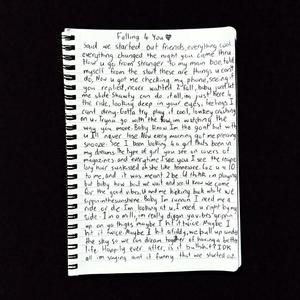 Falling 4 You
Said we started out friends, everything cool
everything changed the night you came thru
How u go from stranger to my main boo, told
myself from the start these are things u can't
do. Now u got me checking my phone, seeing if
you replied, never wanted 2 fall, baby just let
me slide Shawty can do it all, im just here 4
the ride, looking deep in your eyes, feelings I
cant deny. Gotta try play it cool, lowkey crushing
on u. Tryna go with the flow, im watching the
way you move. Baby know Im the goat but with
u I'll never lose Now every morning got me pressing
snooze. See I been looking 4 a girl thats been in
my dreams, the type of girl you see on covers of
magazines and everytime I see you I see the magic
long hair sunkissed
to me, and it was meant 2 be. U think im playing
but baby how bout we wait and see. U know we came
for the good vibes. U and me kicking back while we
sippin
ride or die. Im looking at u. I need u right by my
side. 1 in a mill, im really diggin ya vibes grippin
up on ya thighs maybe I hit it twice. Maybe I
hit it twice. Maybe I hit
the sky so we can dream together of having a better
life. Happily ever after, is it bullshit? IDK
all im saying aint it funny that we started out